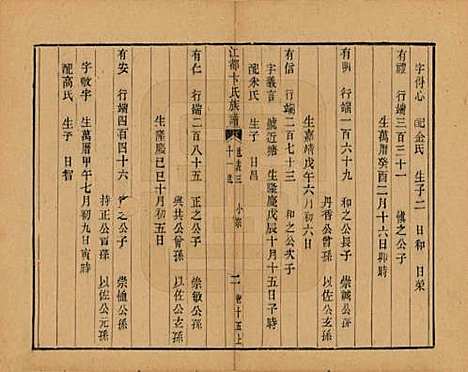 字得心 配金氏 生子二 日和 日榮
有禮 行端三百三十一 慎之公子
生萬曆癸酉二月十六日卯時
有明 行端一百六十九 和之公長子 崇誠公孫
丹香公曾孫 以佐公玄孫
生嘉靖戊午六月初六日
有信 行端二百七十三 和之公次子
字義言 號近塘 生隆慶戊辰十月十五日子時
配朱氏 生子 日昌
江都卞氏族譜 十一 小宗 二 卷十五上
有仁 行端二百八十五 正之公子 崇敏公孫
與共公曾孫 以佐公玄孫
生隆慶己巳十月初五日
有安 行端四百四十六 行之公子 崇恤公孫
持正公孫 以佐公元孫
字敏宇 生萬曆甲午七月初九日寅時
配高氏 生子 日